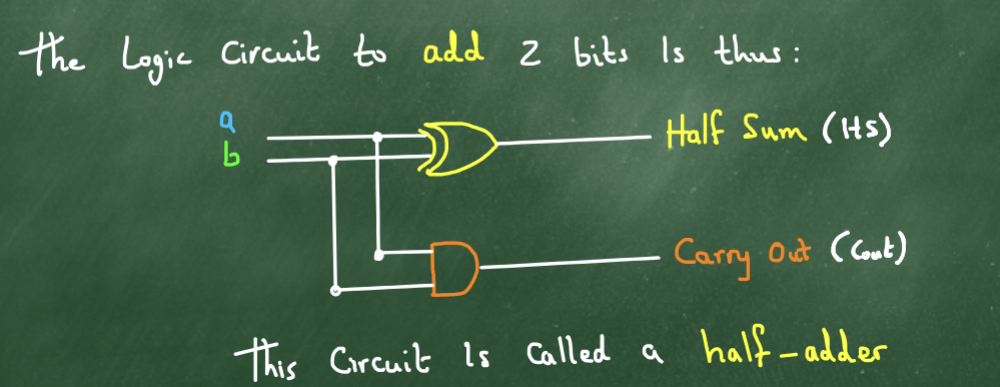 The Logic Circuit to add 2 bits Is thus:
a
b
Half Sum (HS)
Carry Out (Cout)
This Circuit Is Called a half-adder